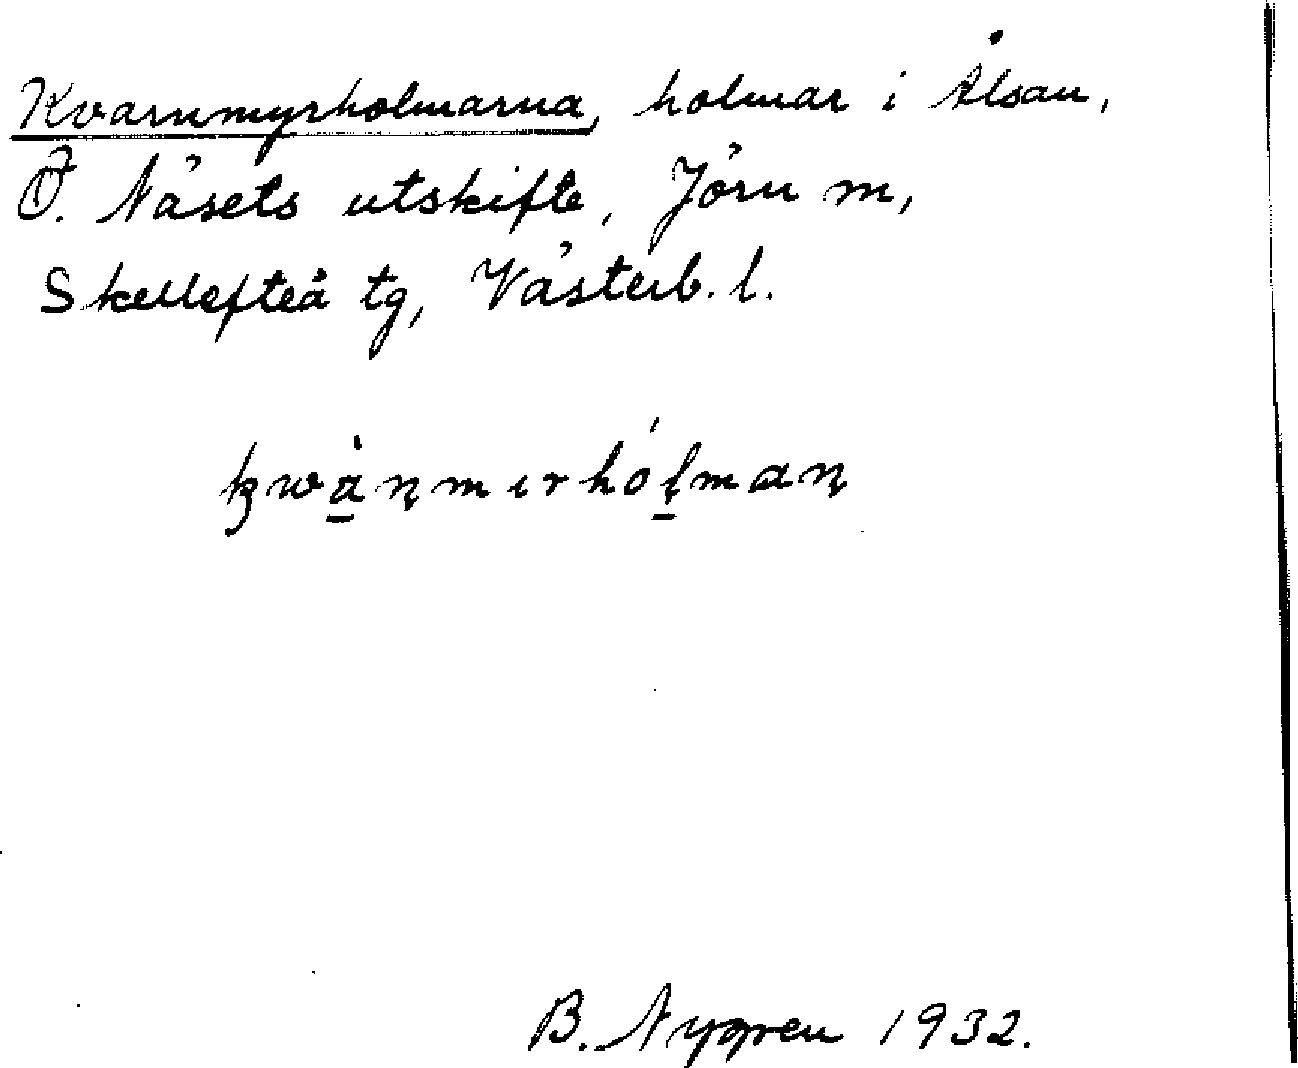 Kvarnmyrholmarna, holmar i Ålsån,
Ö. Näsets utskifte, Jörn m,
Skellefteå tg, Västerb. l.
B. Nygren 1932.